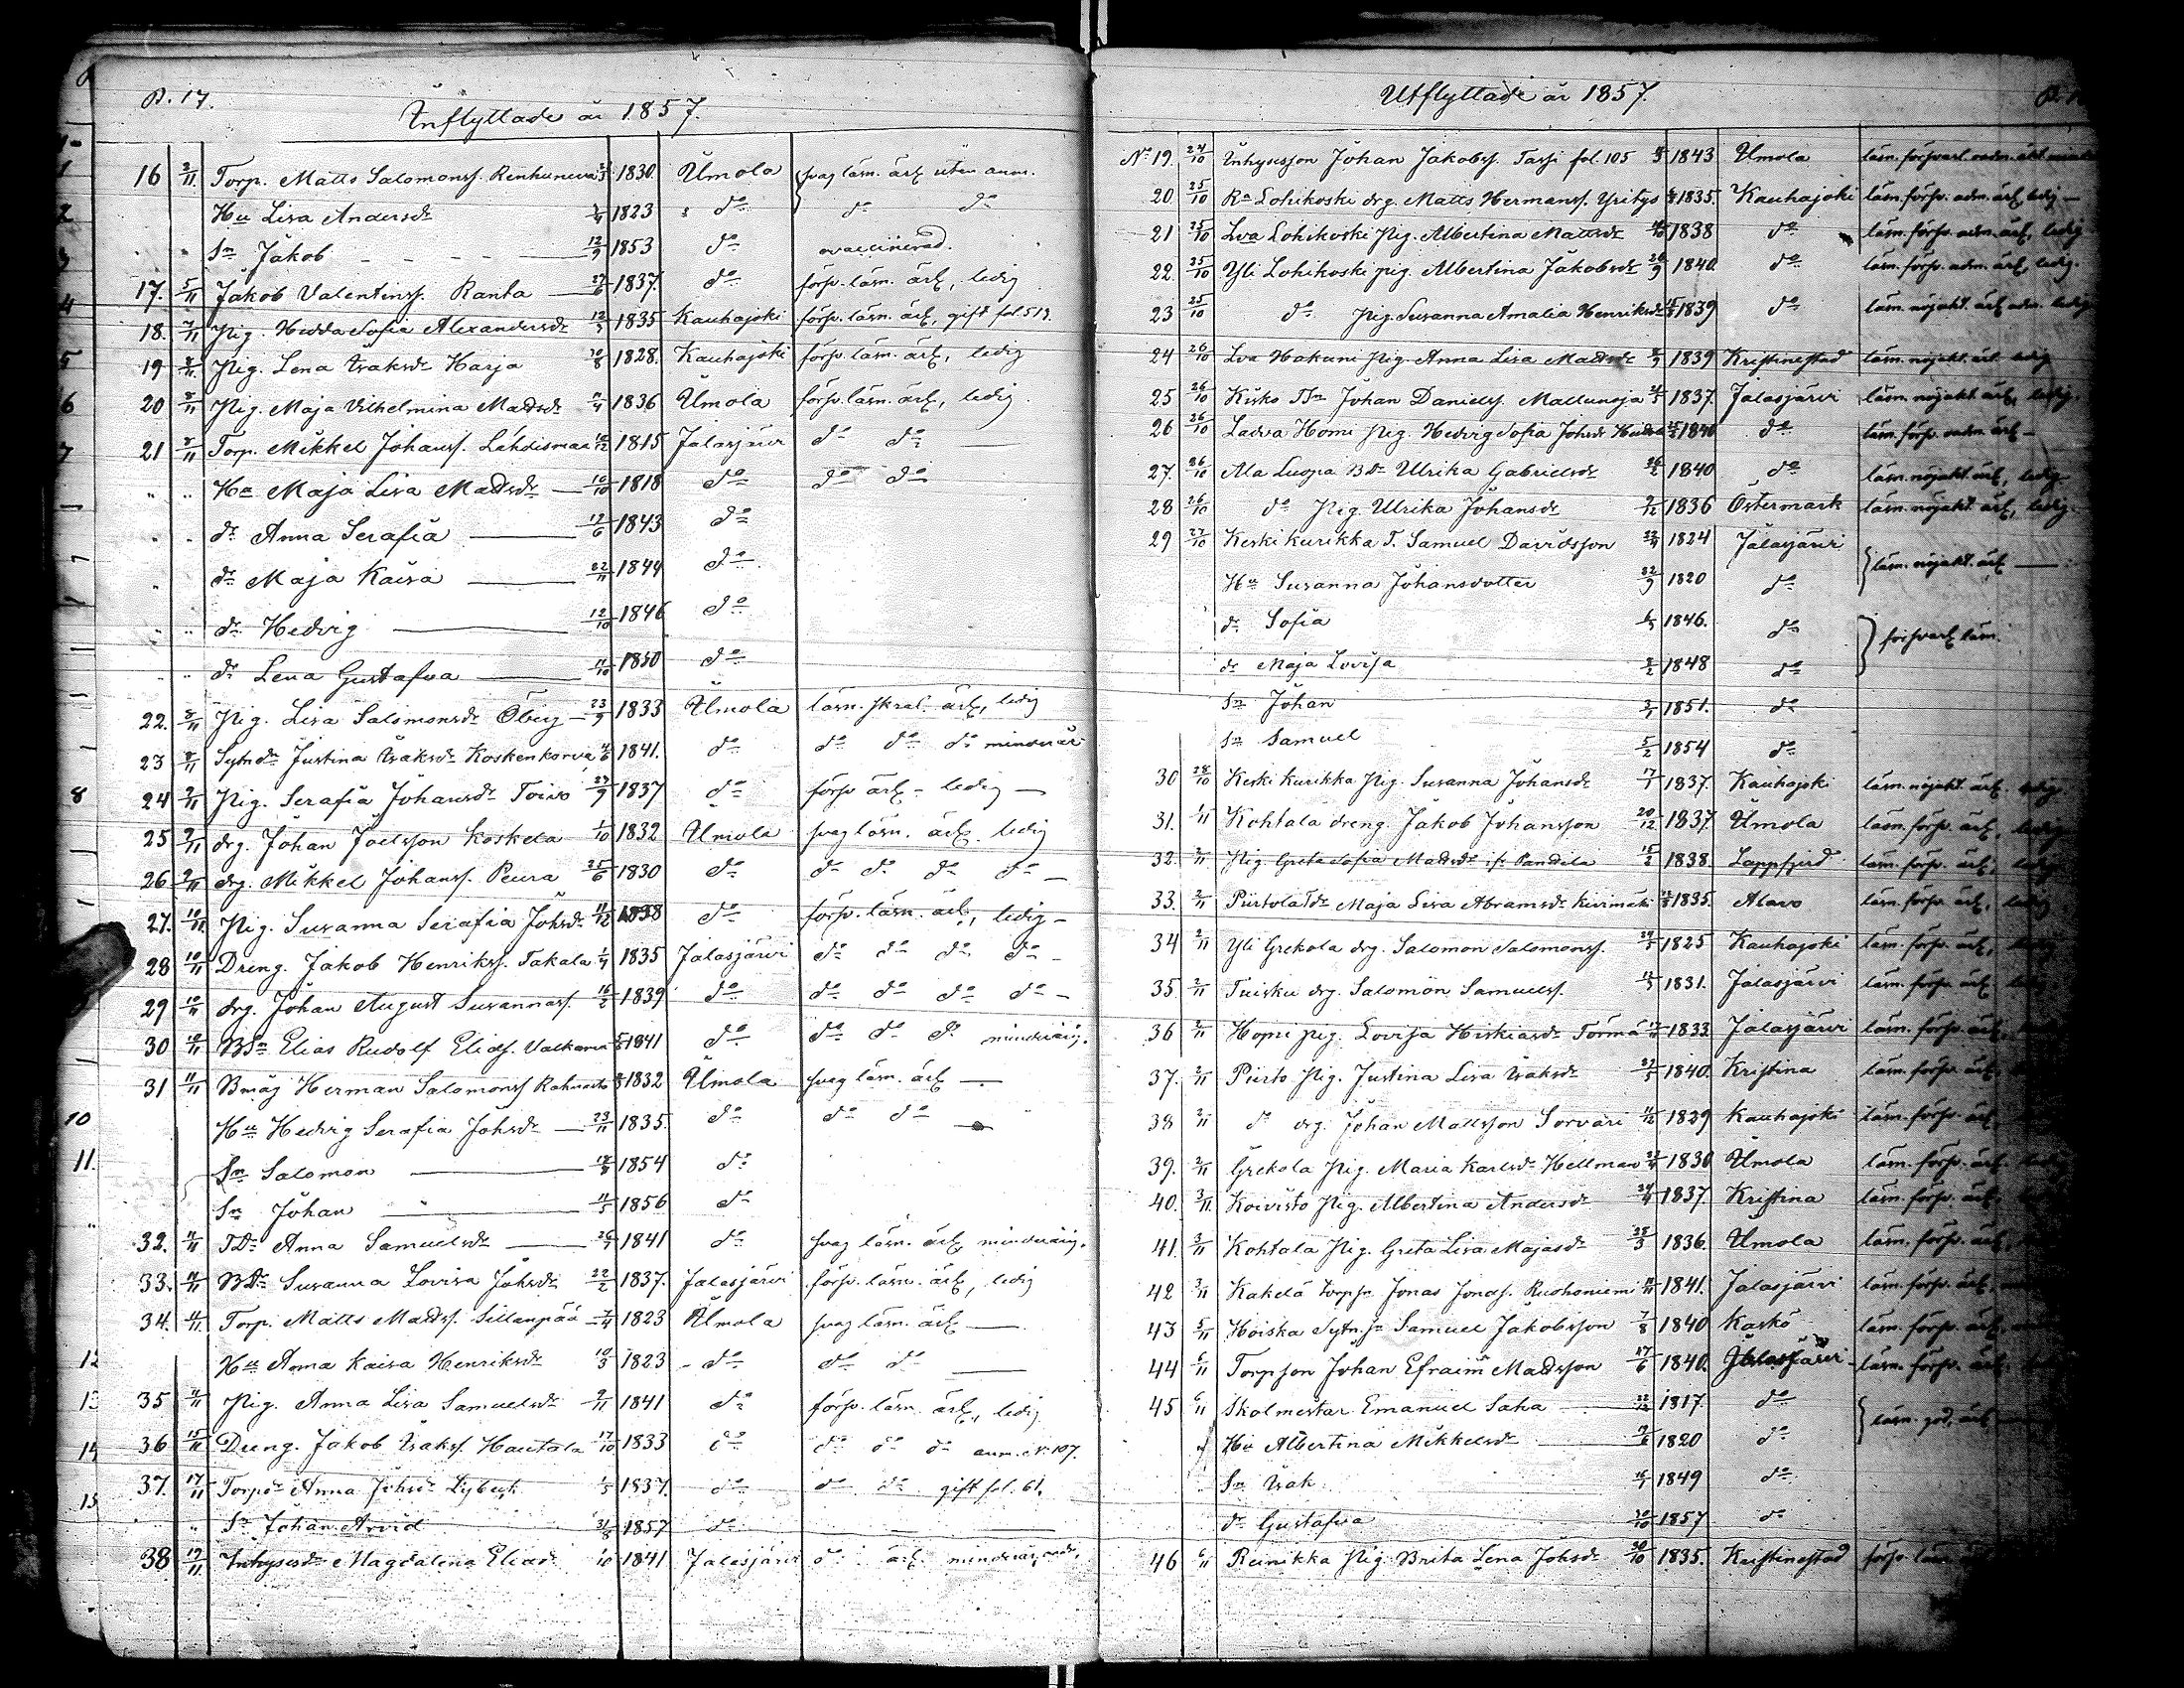 P. 17.
Inflyttade år 1857.
16 2/11 Torp. Matts Salomonss. Renkuneva 1830. Ilmola svag läsn. ärl utan anm.
Hu Lisa Andersdr 1823 do do do
Sn Jakob 12/9 1853 do ovaccinerad.
17. 5/11 Jakob Valentinss. Ranta 27/6 1837. do försv. läsn. ärl, ledig
18. 7/11 Pig. Hedda Sofia Alexandersdr 1835 Kauhajoki försv. läsn. ärl, gift fol 519.
19 8/11 Pig. Lena Isaksdr Harja 1828. Kauhajoki försv. läsn. ärl, ledig
20 8/11 Pig. Maja Vilhelmina Mattsdr 1836 Ilmola försv. läsn. ärl, ledig.
21 8/11 Torp. Mikkel Johanss. Lähdismaa 1815 Jalasjärvi do do
Hu Maja Lisa Mattsdr 10/10 1818 do do do
dr Anna Serafia 12/6 1843 do
dr Maja Kaisa 22/11 1844 do
dr Hedvig 12/10 1846 do
dr Lena Gustafva 11/10 1850 do
22. 8/11 Pig. Lisa Salomonsdr Öberg 23/9 1833 Ilmola läsn. skral. ärl, ledig
23 8/11 Sytndr Justina Isaksdr Koskenkorva 1841. do do do do minderår
24 9/11 Pig. Serafia Johansdr Toivo 1837 do försv ärl - ledig
25 9/11 drg. Johan Joelsson Koskela 1/10 1832 Ilmola svag läsn. ärl. ledig
26 9/11 drg. Mikkel Johanss. Peura 25/6 1830 do do do do do
27. 10/11 Pig. Susanna Serafia Johsdr 11/12 1838 do försv. läsn. ärl, ledig
28 10/11 Dreng. Jakob Henrikss. Takala 1835 Jalasjärvi do do do do
29 10/11 drg. Johan August Susannass. 16/2 1839 do do do do do
30 10/11 BSn Elias Rudolf Eliass. Valkama 1841 do do do do minderårig.
31 11/11 Bmåg Herman Salomonss Rahnasto 1832 Ilmola svag läsn. ärl
Hu Hedvig Serafia Johsdr 23/11 1835. do do do
Sn Salomon 1854 do
Sn Johan 1856 do
32. 11/11 TDr Anna Samuelsdr 1841 do svag läsn. ärl, minderårig.
33. 11/11 BDr Susanna Lovisa Johsdr 22/2 1837. Jalasjärvi försv. läsn. ärl, ledig
34. 11/11 Torp. Matts Mattss. Sillanpää 1823 Ilmola svag läsn. ärl
Hu Anna Kaisa Henriksdr 10/3 1823 do do do
35 11/11 Pig. Anna Lisa Samuelsdr 9/11 1841 do försv. läsn. ärl, ledig
36 15/11 Dreng. Jakob Isakss. Hautala 17/10 1833 do do do do anm. No 107.
37. 17/11 Torpdr Anna Johsdr Lybeck 1837. do do do gift fol. 61.
Sn Johan Arvid 31/8 1857 do
38 17/11 Inhysesdr Magdalena Eliasdr 1/10 1841 Jalasjärvi do ärl minderår
Utflyttade år 1857.
No 19. 24/10 Inhysesson Johan Jakobss. Tassi fol. 105 1843 Ilmola
20 25/10 Ra Lohikoski drg. Matts Hermanss. Yritys 1835. Kauhajoki läsn. försv. adm. ärl, ledig
21 25/10 Lva Lohikoski pig. Albertina Mattsdr 1838 do läsn. försv. adm. ärl, ledig
22. 25/10 Yli Lohikoski pig. Albertina Jakobsdr 26/9 1840 do läsn. försv. adm. ärl, ledig.
23 25/10 do pig. Susanna Amalia Henriksdr 1839 do läsn. nöjakt. ärl adm. ledig
24 26/10 Lva Hakuni pig. Anna Lisa Mattsdr 1839 Kristinestad läsn. nöjakt. ärl. ledig
25 26/10 Kisko TSn Johan Danielss. Malluneja 1837. Jalasjärvi läsn. nöjakt. ärl, ledig.
26 26/10 Ladva Homi pig. Hedvig Sofia Johsdr 1840 do läsn. försv. adm. ärl
27. 26/10 Ala Luopa BDr Ulrika Gabrielsdr 26/2 1840 do läsn. nöjakt. ärl, ledig
28 26/10 do pig. Ulrika Johansdr 1836 Östermark läsn. nöjakt. ärl, ledig.
29 27/10 Keski Kurikka T. Samuel Davidsson 1824 Jalasjärvi läsn. nöjakt. ärl
Hu Susanna Johansdotter 22/9 1820 do
dr Sofia 1846. do försvarl läsn.
dr Maja Lovisa 1848 do
Sn Johan 1851. do
Sn Samuel 5/2 1854 do
30 28/10 Keski Kurikka pig. Susanna Johansdr 17/7 1837. Kauhajoki läsn. nöjakt. ärl. ledig
31. 1/11 Kohtala dreng. Jakob Johansson 20/12 1837. Ilmola läsn. försv. ärl, ledig
32. 2/11 Pig. Greta Sofia Mattsdr Pandila 15/2 1838. Lappfjerd läsn. försv. ärl, ledig
33. 2/11 Piirtola Tdr Maja Lisa Abramsdr Kivimäki 1835. Alavo läsn. försv. ärl, ledig
34 2/11 Yli Grekola drg. Salomon Salomonss. 29/5 1825 Kauhajoki läsn. försv. ärl,
35 2/11 Tuisku drg. Salomon Samuelss. 1831. Jalasjärvi läsn. försv. ärl
36 2/11 Homi pig. Lovisa Hiskiasdr Törmä 1833. Jalasjärvi läsn. försv. ärl,
37. 2/11 Piirto pig. Justina Lisa Isaksdr 1840. Kristina läsn. försv. ärl,
38 2/11 do drg. Johan Mattsson Sorvari 11/12 1839 Kauhajoki läsn. försv. ärl,
39. 2/11 Grekola pig. Maria Karlsdr Hellman 1830 Ilmola läsn. försv. ärl.
40. 3/11 Koivisto pig. Albertina Andersdr 1837. Kristina läsn. försv. ärl,
41. 3/11 Kohtala pig. Greta Lisa Majasdr 28/3 1836. Ilmola läsn. försv. ärl,
42 3/11 Kakelä torpsn Jonas Jonass. Ruohoniemi 1841. Jalasjärvi läsn. försv. ärl,
43 5/11 Hoiska Sytn.sn Samuel Jakobsson 7/8 1840 Kaskö läsn. försv. ärl,
44 6/11 Torpson Johan Efraim Mattsson 17/6 1840. Jalasjärvi läsn. försv. ärl.
45 6/11 Skolmästar Emanuel Saha 1817. do läsn. god, ärl
Hu Albertina Mikkelsdr 1820 do
Sn Isak 1849 do
dr Gustafva 20/10 1857 do
46 6/11 Reinikka pig. Brita Lena Johsdr 30/10 1835. Kristinestad försv. läsn